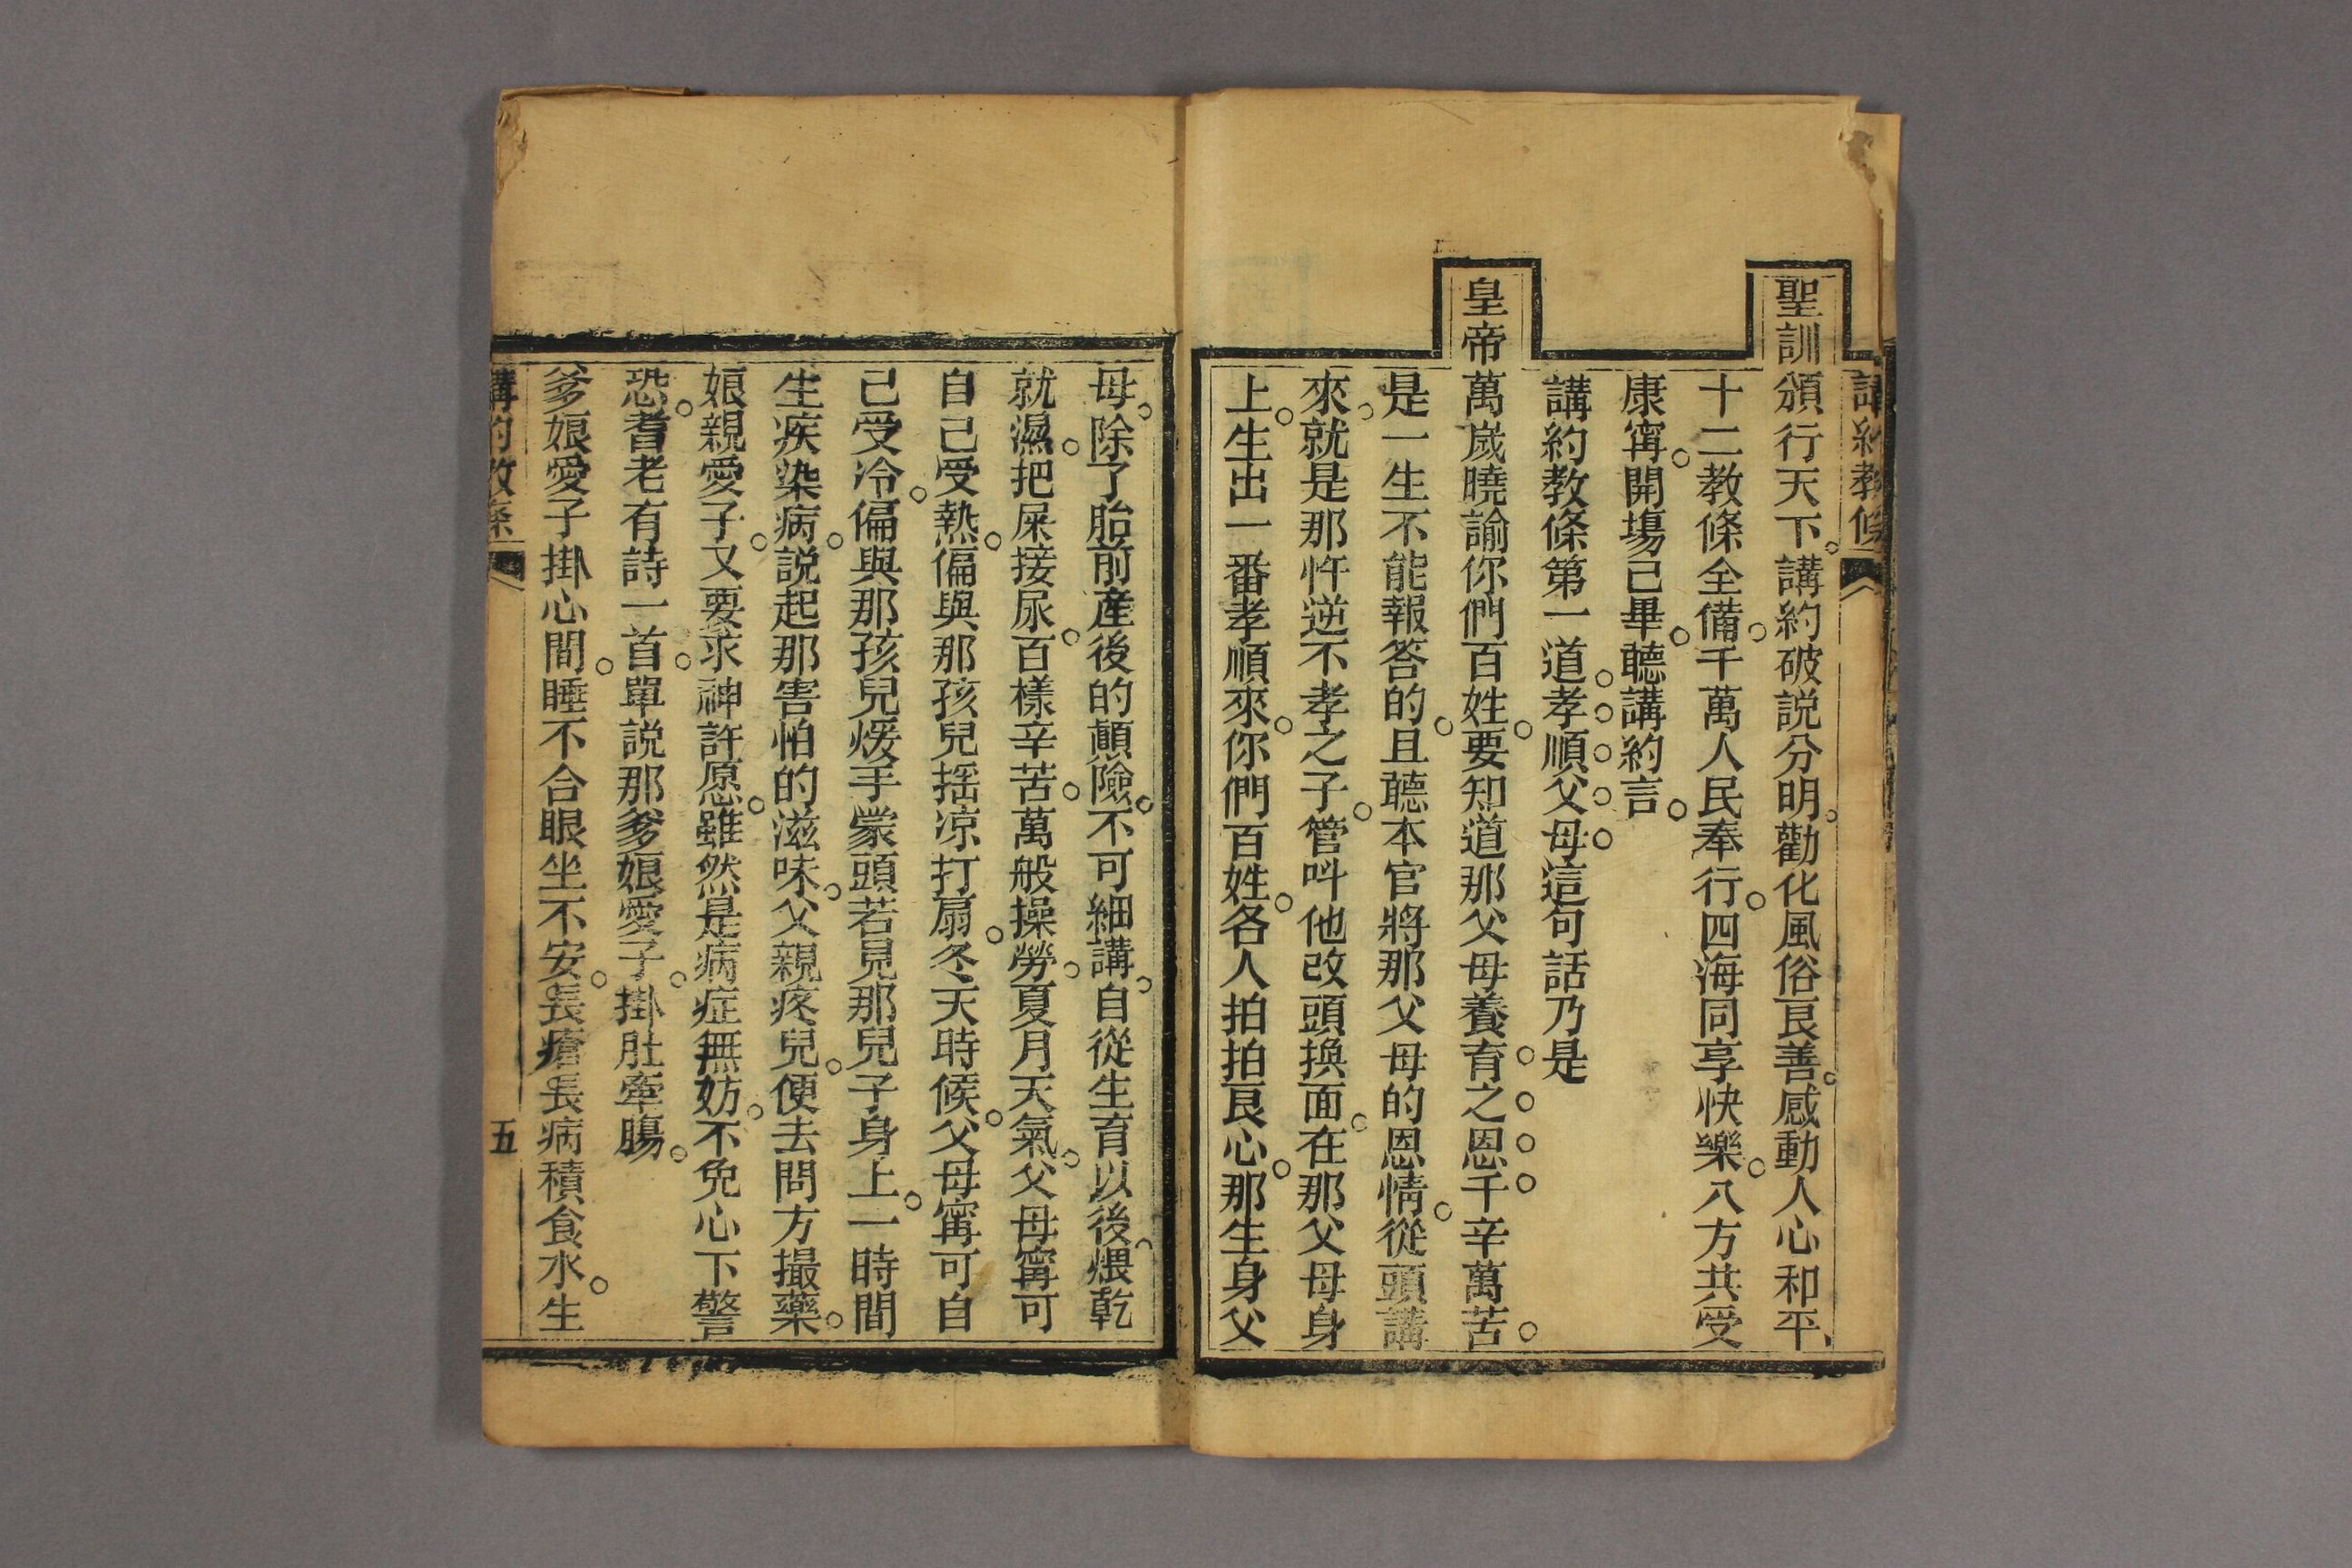 講約教條
聖訓頒行天下。講約破説分明。勸化風俗良善。感動人心和平、
十二教條全備。千萬人民奉行。四海同享快樂。八方共受
康寗。開塲已畢。聽講約言。
講約教條第一道。孝。順。父。母。這句話乃是
皇帝萬嵗曉諭你們百姓。要知道那父母養育。之。恩。千。辛萬苦。
是一生不能報答的。且聽本官將那父母的恩情。從頭講
來。就是那忤逆不孝之子。管呌他改頭換面。在那父母身
上。生出一番孝順來。你們百姓。各人拍拍良心。那生身父
母。除了胎前產後的顛險。不可細講。自從生育以後。煨乾
就濕。把屎接尿。百樣辛苦。萬般操勞。夏月天氣。父母寗可
自己受熱。偏與那孩兒揺凉打扇。冬天時候。父母寗可自
己受冷。偏與那孩兒煖手蒙頭若見那兒子身上。一時間
生疾染病。説起那害怕的滋味。父親疼兒。便去問方撮藥。
娘親愛子。又要求神許愿。雖然是病症無妨。不免心下警
恐。耆老有詩一首。單説那爹娘愛子。掛肚牽腸。
爹娘愛子掛心間。睡不合眼坐不安。長瘡長病積食水。生
講約教條
五